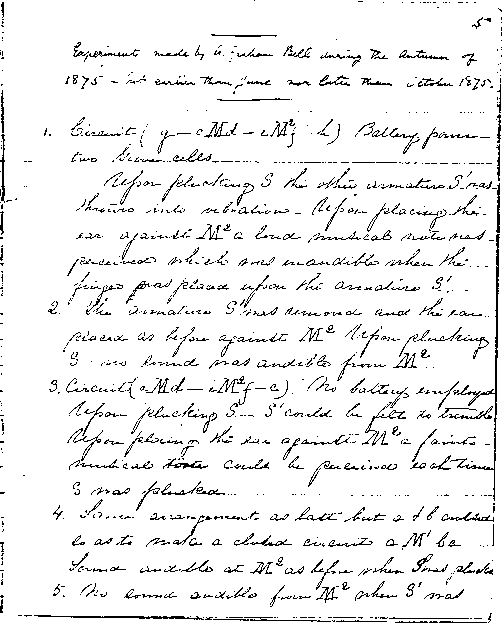 5
Experiments made by A. Graham Bell during the Autumn of
1875 – not earlier than June nor later than October 1875.
1. Circuit { g – c Md – e M² f h } Battery power
two Grove cells
Upon plucking S the other armature S' was
thrown into vibration – Upon placing the
ear against M² a loud musical note was
perceived which was inaudible when the
finger was placed upon the armature S'.
2. The armature S' was removed and the ear
placed as before against M² Upon plucking
S no sound was audible from M².
3. Circuit { c Md – e M² f – c ). No battery employed
Upon plucking S – S' could be felt to tremble
Upon placing the ear against M² a faint
musical tone could be perceived each time
S was plucked
4. Same arrangement as last but a & b united
so as to make a closed circuit a M' b a
Sound audible at M² as before when S was plucked
5. No sound audible from M² when S' was